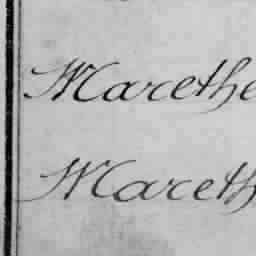 Marethe
Mareth